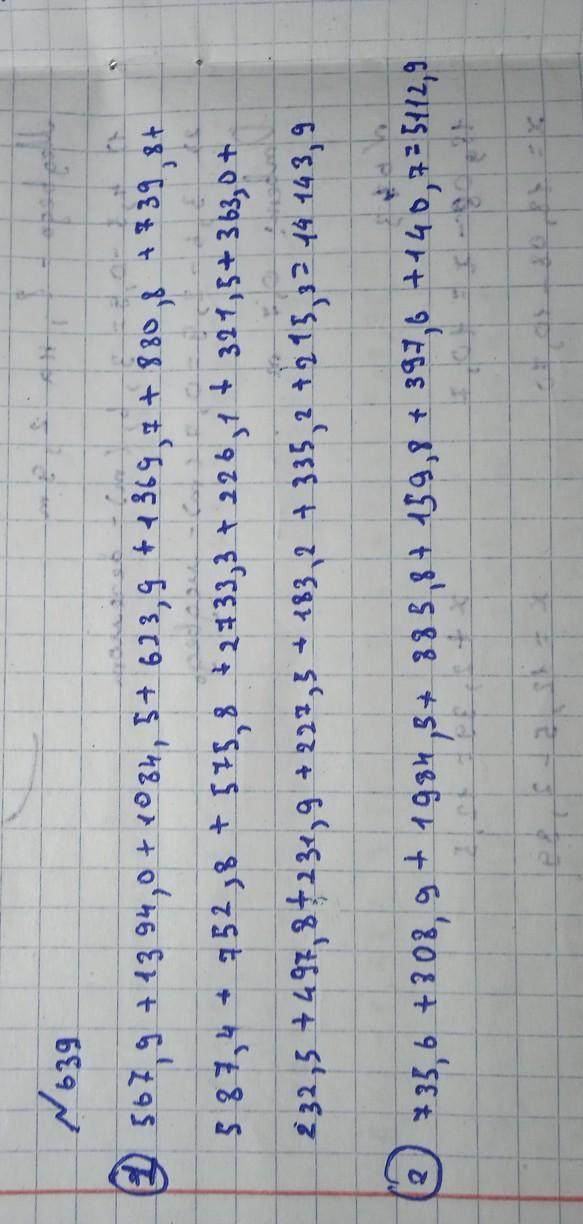 №639
1) 567,9 + 1394,0 + 1034,5 + 623,9 + 1369,7 + 880,8 + 739,8 +
587,4 + 752,8 + 575,8 + 2733,3 + 226,1 + 321,5 + 363,0 +
232,5 + 497,8 + 231,9 + 227,5 + 183,2 + 335,2 + 215,3 = 14 143,9
2) 735,6 + 308,9 + 1984,5 + 885,8 + 159,8 + 397,6 + 140,7 = 5112,9